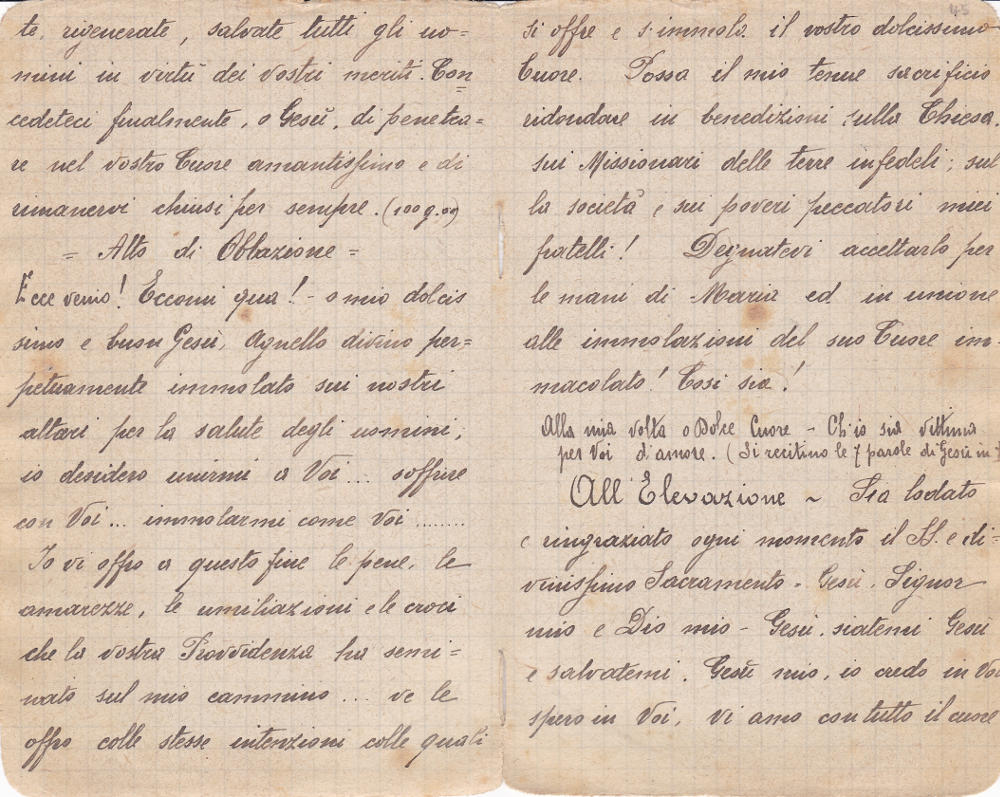 te, rigenerate, salvate tutti gli uo=
mini in virtù dei vostri meriti. Con=
cedeteci finalmente, o Gesù, di penetra=
re nel vostro Cuore amantissimo e di
rimanervi chiusi per sempre. (100 g.
= Atto di Oblazione =
Ecce venio! Eccomi qua! - o mio dolcis
simo e buon Gesù, Agnello divino per=
petuamente immolato sui nostri
altari per la salute degli uomini,
io desidero unirmi a Voi... soffrire
con Voi... immolarmi come Voi ........
Io vi offro a questo fine le pene, le
amarezze, le umiliazioni e le croci
che la vostra Provvidenza ha semi=
nato sul mio cammino ... ve le
offro colle stesse intenzioni colle quali
45
si offre e s'immola il vostro dolcissimo
Cuore. Possa il mio tenue sacrificio
ridondare in benedizioni sulla Chiesa,
sui Missionari delle terre infedeli, sul
la società e sui poveri peccatori miei
fratelli! Degnatevi accettarlo per
le mani di Maria ed in unione
alle immolazioni del suo Cuore im-
macolato! Così sia!
Alla mia volta o Dolce Cuore - Ch'io sia vittima
per Voi d'amore. (Si recitino le 7 parole di Gesù in
All'Elevazione ~ Sia lodato
e ringraziato ogni momento il SS. e di=
vinissimo Sacramento - Gesù, Signor
mio e Dio mio - Gesù, siatemi Gesù
e salvatemi. Gesù mio, io credo in Voi
spero in Voi, vi amo con tutto il cuore